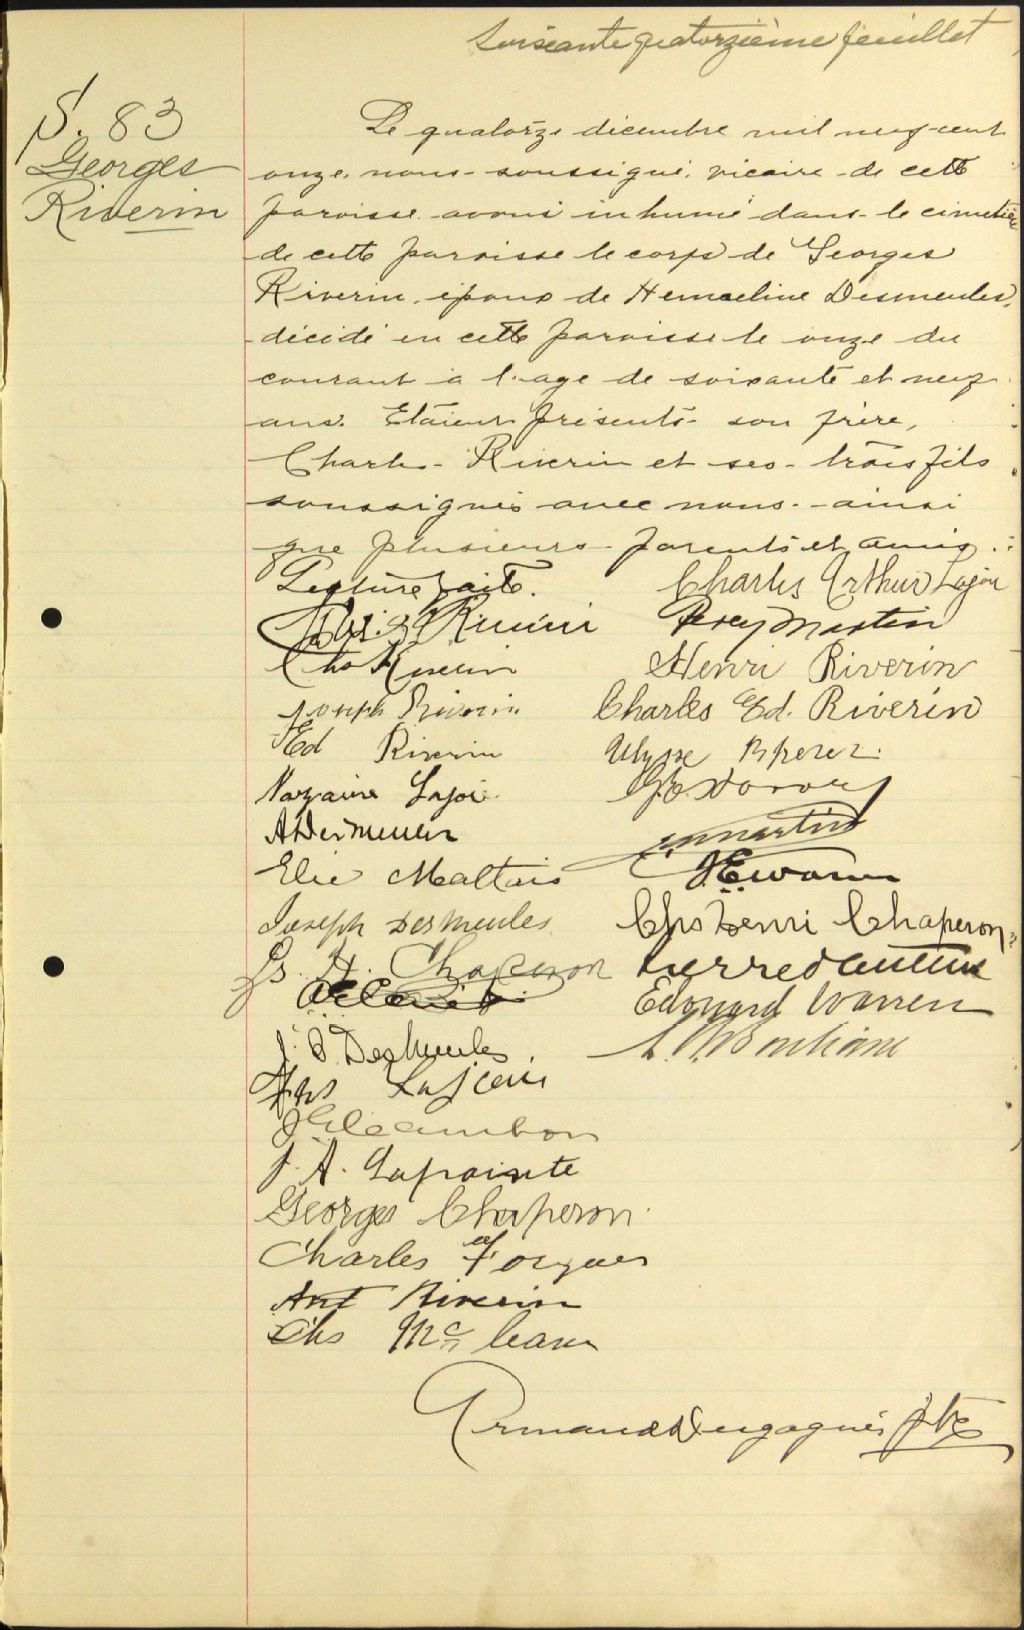 Soixante quatorzième feuillet
S. 83
Georges
Riverin
Le quatorze décembre mil neuf-cent
onze, nous-soussigné, vicaire de cette
paroisse avons inhumé dans le cimetière
de cette paroisse le corps de Georges
Riverin, époux de Hermeline Desmeules,
décédé en cette paroisse le onze du
courant à l'age de soixante et neuf
ans. Etaient présents son frère,
Charles Riverin et ses trois fils
soussignés avec nous ainsi
que plusieurs parents et amis.
Lecture faite.
Riverin
Chs Riverin
Joseph Riverin
Ed Riverin
Nazaire Lajoie
A Desmeules
Elie Maltais
Joseph Desmeules
Js. H. Chaperon
J. O. Desmeules
J. A. Lapointe
Georges Chaperon
Charles Forgues
Ant Riverin
Chs Mc Lean
Charles Arthur Lajoie
Percy Martin
Henri Riverin
Charles Ed. Riverin
Ulysse
Martin
Chs Henri Chaperon
Edouard Warren
Armand Dugagnés ptre